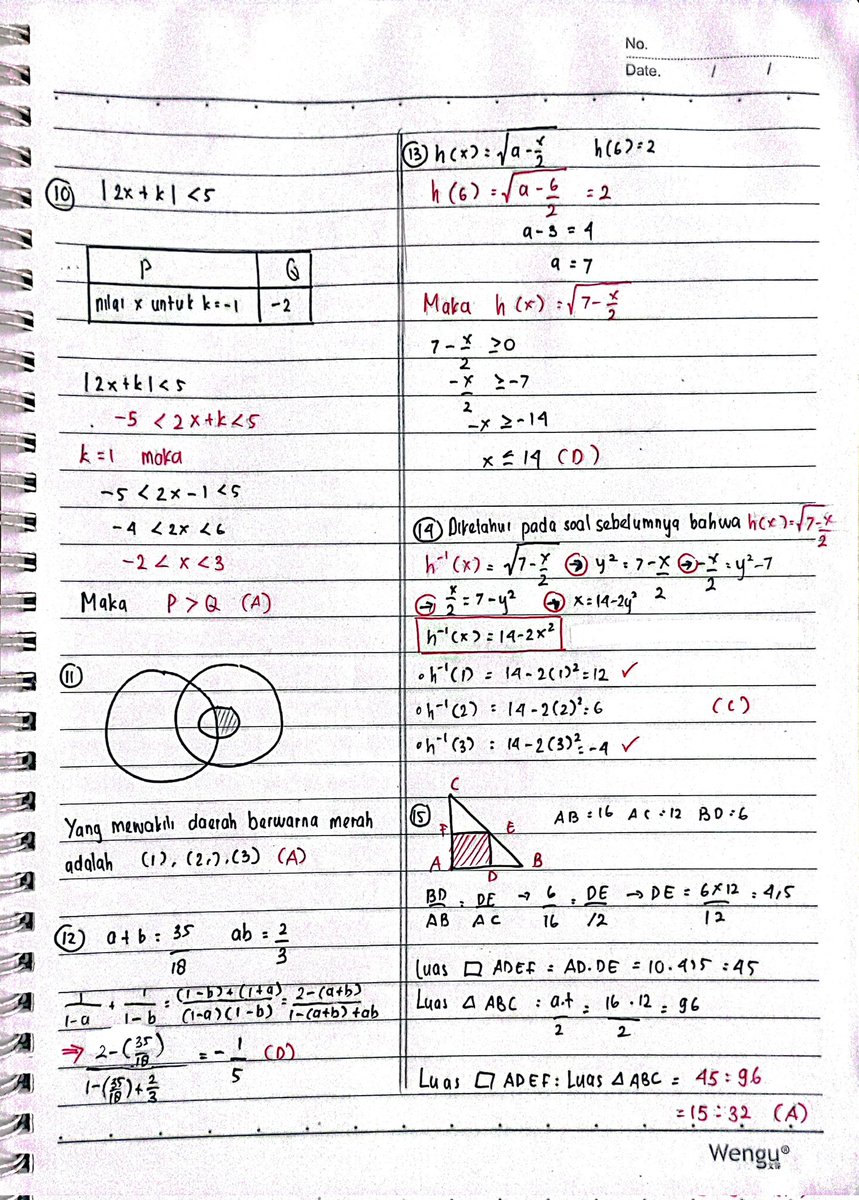 No.
Date. / /
⑩ |2x+k| <5
P Q
nilai x untuk k=-1 -2
|2x+k|<5
-5 < 2x+k<5
k=1 maka
-5 < 2x-1 <5
-4 < 2x < 6
-2 < x < 3
Maka P > Q (A)
⑪
Yang mewakili daerah berwarna merah
adalah (1), (2,), (3) (A)
⑫ a+b = 35/18 ab = 2/3
1/(1-a) + 1/(1-b) = ((1-b)+(1+a))/((1-a)(1-b)) = (2-(a+b))/(1-(a+b)+ab)
⇒ (2-(35/18))/(1-(35/18)+2/3) = -1/5 (D)
⑬ h(x) = √(a-x/2) h(6)=2
h(6) = √(a-6/2) = 2
a-3 = 4
a = 7
Maka h(x) = √(7-x/2)
7-x/2 ≥0
-x/2 ≥-7
-x ≥-14
x ≤ 14 (D)
⑭ Diketahui pada soal sebelumnya bahwa h(x)=√(7-x/2)
h⁻¹(x) = √(7-x/2) → y² = 7-x/2 → -x/2 = y²-7
→ x/2 = 7-y² → x=14-2y²
h⁻¹(x) = 14-2x²
∘h⁻¹(1) = 14-2(1)²=12 ✓
∘h⁻¹(2) = 14-2(2)²=6 (C)
∘h⁻¹(3) = 14-2(3)²=-4 ✓
⑮ C F E A D B AB=16 AC=12 BD=6
BD/AB = DE/AC → 6/16 = DE/12 → DE = 6×12/12 = 4,5
Luas □ ADEF = AD.DE = 10.4,5 = 45
Luas △ ABC = a.t/2 = 16.12/2 = 96
Luas □ ADEF : Luas △ ABC = 45:96
=15:32 (A)
Wengu®